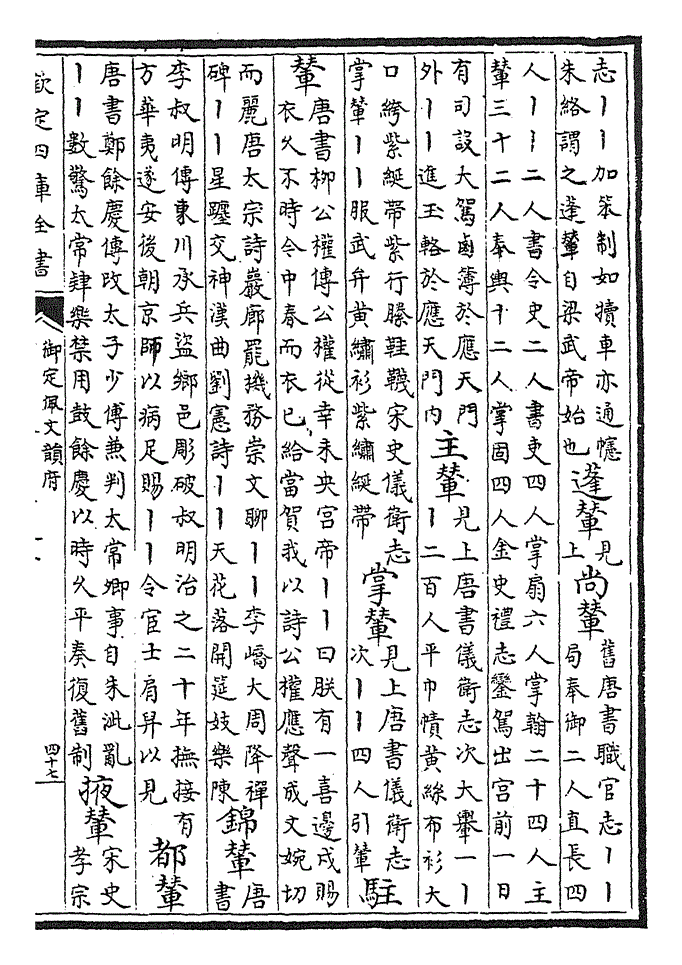 志丨丨加笨制如犢車亦通幰
朱絡謂之逢輦自梁武帝始也
蓬輦
見
上
尚輦
舊唐書職官志丨丨
局奉御二人直長四
人丨丨二人書令史二人書吏四人掌扇六人掌翰二十四人主
輦三十二人奉輿十二人掌固四人金史禮志鑾駕出宮前一日
有司設大駕鹵簿於應天門
外丨丨進玉輅於應天門內
主輦
見上唐書儀衛志次大轝一丨
丨二百人平巾幘黃絲布衫大
口絝紫綖帶紫行縢鞋韈宋史儀衛志
掌輦丨丨服武弁黃繡衫紫繡綖帶
掌輦
見上唐書儀衛志
次丨丨四人引輦
駐
輦
唐書柳公權傳公權從幸未央宮帝丨丨曰朕有一喜邊戍賜
衣久不時今中春而衣已給當賀我以詩公權應聲成文婉切
而麗唐太宗詩巖廊罷機務崇文聊丨丨李嶠大周降禪
碑丨丨星躔交神漢曲劉憲詩丨丨天花落開筵妓樂陳
錦輦
唐
書
李叔明傳東川承兵盜鄉邑彫破叔明治之二十年撫接有
方華夷遂安後朝京師以病足賜丨丨令宦士肩舁以見
都輦
唐書鄭餘慶傳改太子少傅兼判太常卿事自朱泚亂
丨丨數驚太常肄樂禁用鼓餘慶以時久平奏復舊制
掖輦
宋史
孝宗
欽定四庫全書
御定佩文韻府
四十七